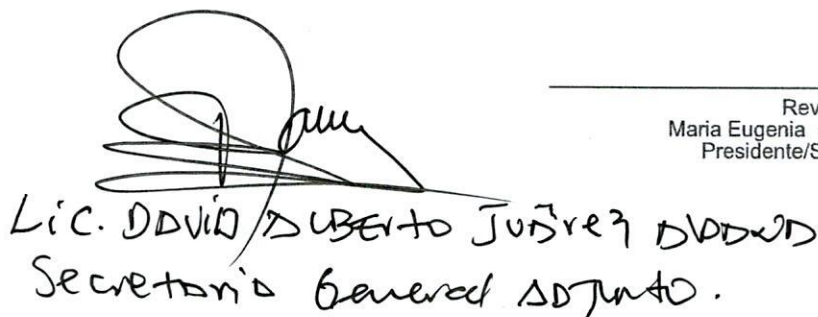 Rev
Maria Eugenia
Presidente/S
Lic. DAViD ALBErto JuÁrez
Secretario General ADJunto.